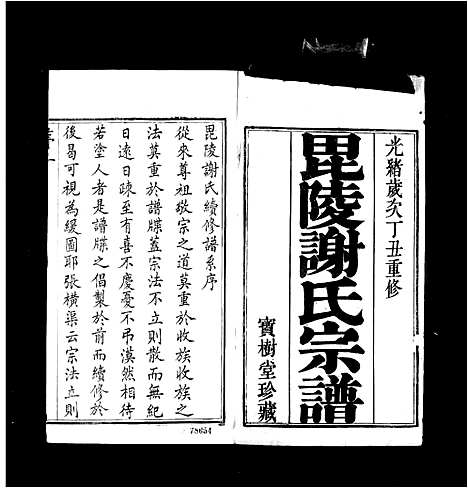 光緒歲次丁丑重修
毘陵謝氏宗譜
寶樹堂珍藏
毘陵謝氏續修譜系序
從來尊祖敬宗之道莫重於收族收族之
法莫重於譜牒蓋宗法不立則散而無紀
日遠日疎至有喜不慶憂不吊漠然相待
若塗人者是譜牒之倡製於前而續修於
後曷可視為緩圖耶張橫渠云宗法立則
78654